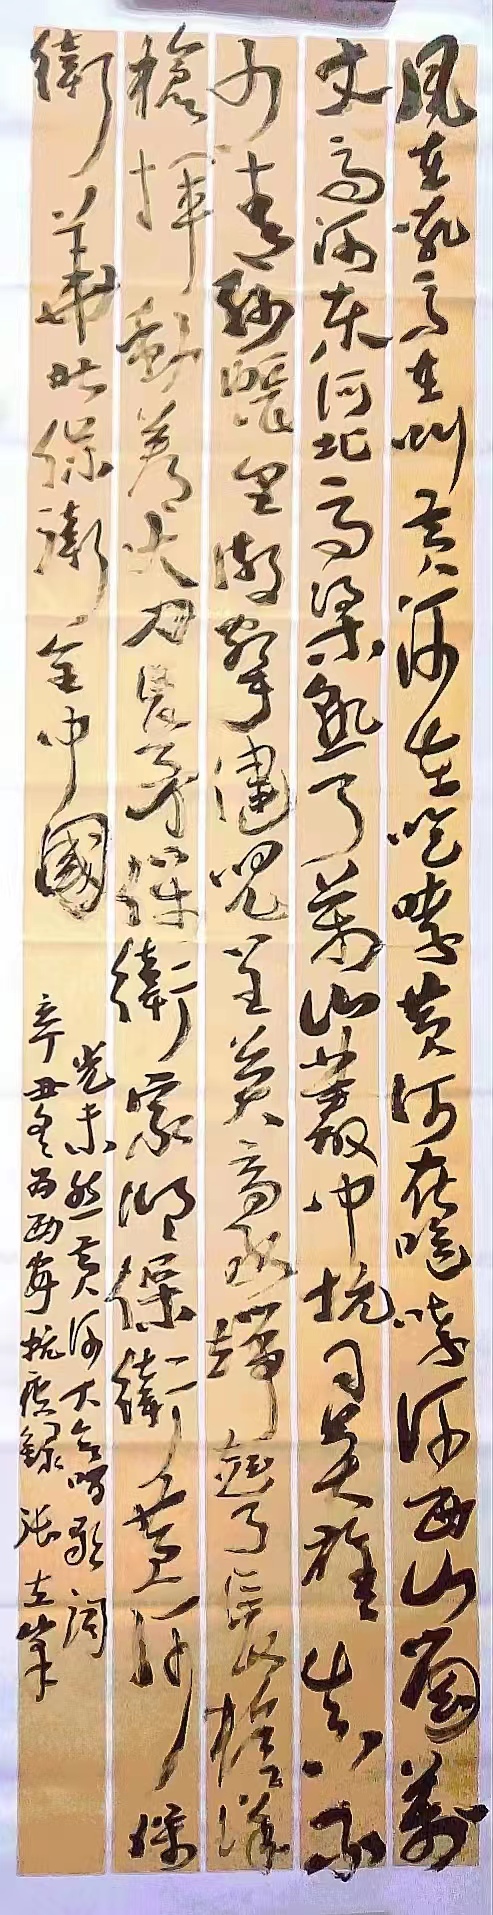 风在吼马在叫黄河在咆哮黄河在咆哮河西山岡萬
丈高河東河北高粱熟了萬山叢中抗日英雄真不
少青紗帳里游擊健兒呈英豪端起了長槍洋
槍揮動着大刀長矛保衛家鄉保衛黄河保
衛華北保衛全中國
光未然黄河大合唱歌词
辛丑冬为西安抗疫錄 張